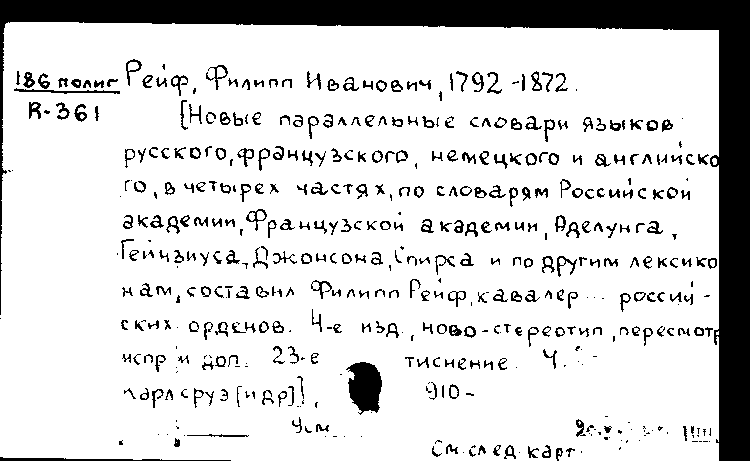 186 полиг Рейф, Филипп Иванович, 1792-1872.
R-361 [Новые параллельные словари языков
русского, французского, немецкого и английско
го, в четырех частях, по словарям Российской
академии, Французской академии, Аделунга,
Гейнзиуса, Джонсона, Спирса и по другим лексико
нам, составил Филипп Рейф, кавалер ... россий-
ских орденов. 4-е изд., ново-стереотип, пересмотр
испр и доп. 23-е тиснение. Ч.
Карлсруэ [и др]], 910-
См. след. карт